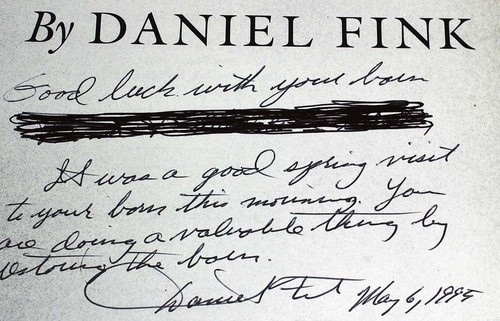 By DANIEL FINK
Good luck with your barn
It was a good spring visit
to your barn this morning. You
are doing a valuable thing by
restoring the barn.
Daniel Fink May 6, 1995